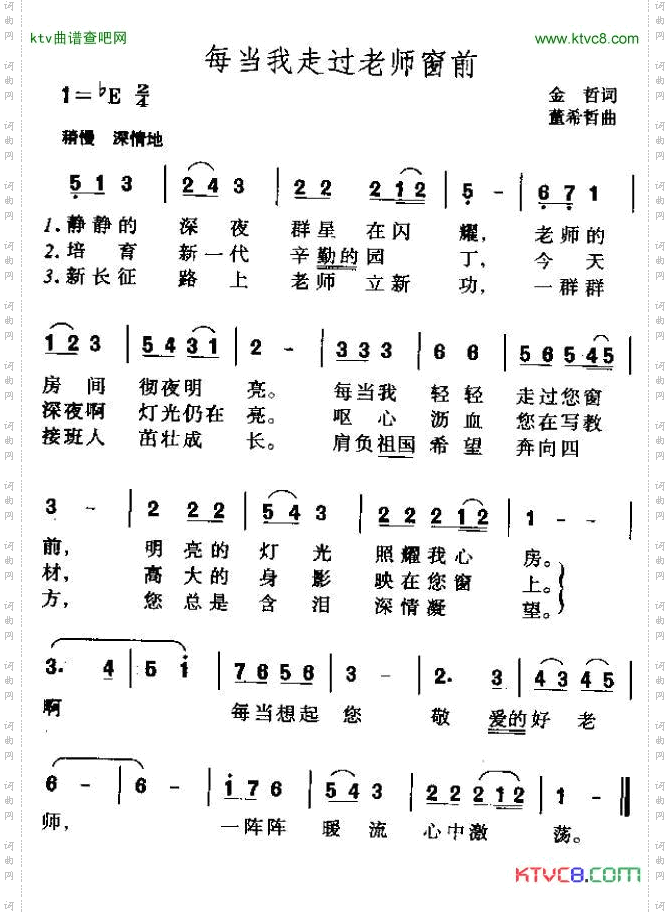 ktv曲谱查吧网
www.ktvc8.com
每当我走过老师窗前
1=♭E 2/4
金 哲词
董希哲曲
稍慢 深情地
5 1 3 | 2 4 3 | 2 2 2 1 2 | 5 - | 6 7 1 |
1.静静的 深 夜 群星 在闪 耀, 老师的
2.培 育 新一代 辛勤的园 丁, 今 天
3.新长征 路 上 老师 立新 功, 一群群
1 2 3 | 5 4 3 1 | 2 - | 3 3 3 6 6 | 5 6 5 4 5 |
房 间 彻夜明 亮。 每当我 轻轻 走过您窗
深夜啊 灯光仍在 亮。 呕心 沥血 您在写教
接班人 茁壮成 长。 肩负祖国 希望 奔向四
3 - | 2 2 2 2 | 5 4 3 | 2 2 2 1 2 | 1 - |
前, 明 亮的 灯 光 照耀我心 房。
材, 高 大的 身 影 映在您窗 上。
方, 您 总是 含 泪 深情凝 望。
3. 4 | 5 1 | 7 6 5 6 5 6 | 3 - | 2. 3 | 4 3 4 5 |
啊 每当想起 您 敬 爱的好 老
6 - | 6 - | 1 7 6 | 5 4 3 | 2 2 2 2 1 2 | 1 - ‖
师, 一阵阵 暖 流 心中激 荡。
KTVC8.COM